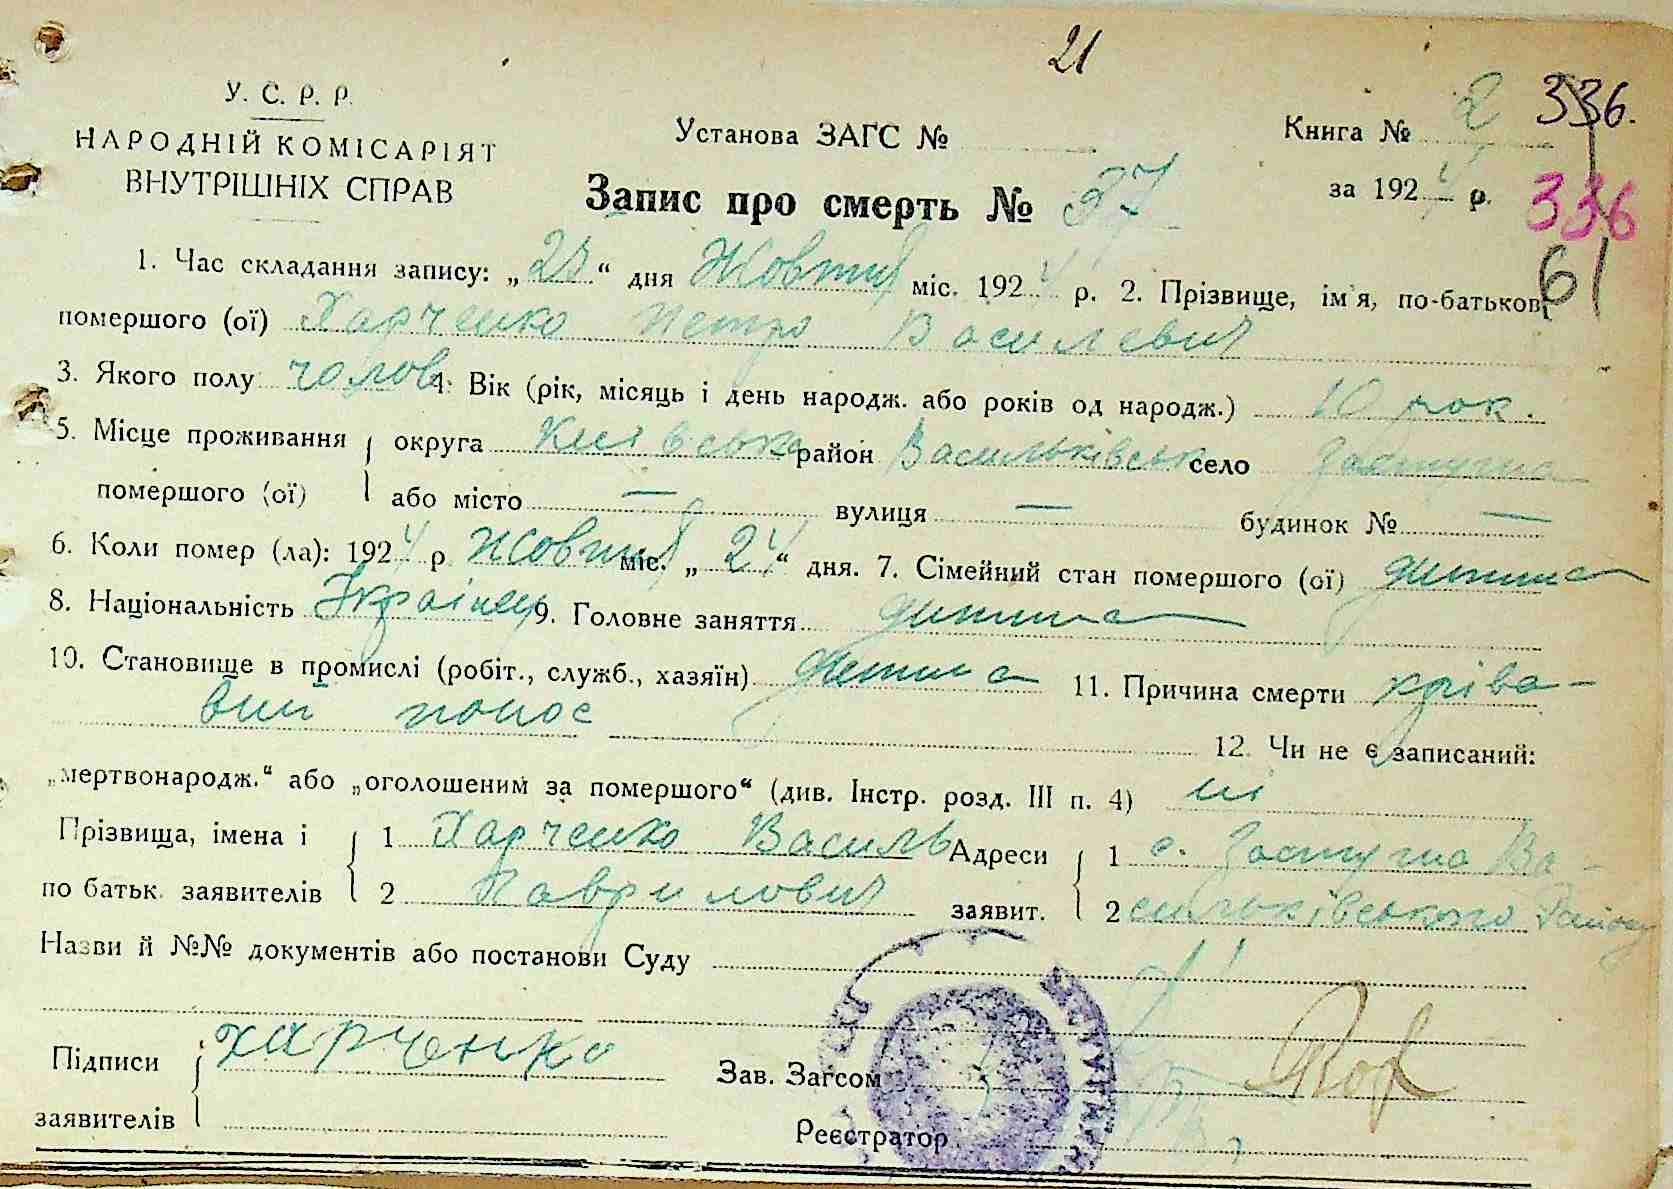 21
У. С. Р. Р.
НАРОДНІЙ КОМІСАРІЯТ
ВНУТРІШНІХ СПРАВ
Установа ЗАГС №
Книга № 2 336.
за 1924 р. 336
61
Запис про смерть № 37
1. Час складання запису: „25“ дня Жовтня міс. 1924 р. 2. Прізвище, ім'я, по-батькові
помершого (ої) Харченко Петро Василевич
3. Якого полу чолов 4. Вік (рік, місяць і день народж. або років од народж.) 10 рок.
5. Місце проживання округа Київська район Васильківськ село Застугна
помершого (ої) або місто — вулиця — будинок № —
6. Коли помер (ла): 1924 р Жовтня міс. „24“ дня. 7. Сімейний стан помершого (ої) дитина
8. Національність Українец 9. Головне заняття дитина
10. Становище в промислі (робіт., служб., хазяїн) дитина 11. Причина смерти кріва-
вий понос 12. Чи не є записаний:
„мертвонародж.“ або „оголошеним за помершого“ (див. Інстр. розд. III п. 4) ні
Прізвища, імена і 1 Харченко Василь Адреси 1 с. Застугна Ва-
по батьк. заявителів 2 Гаврилович заявит. 2 сильківського Району
Назви й №№ документів або постанови Суду
Підписи Харченко Зав. Загсом
заявителів Реєстратор